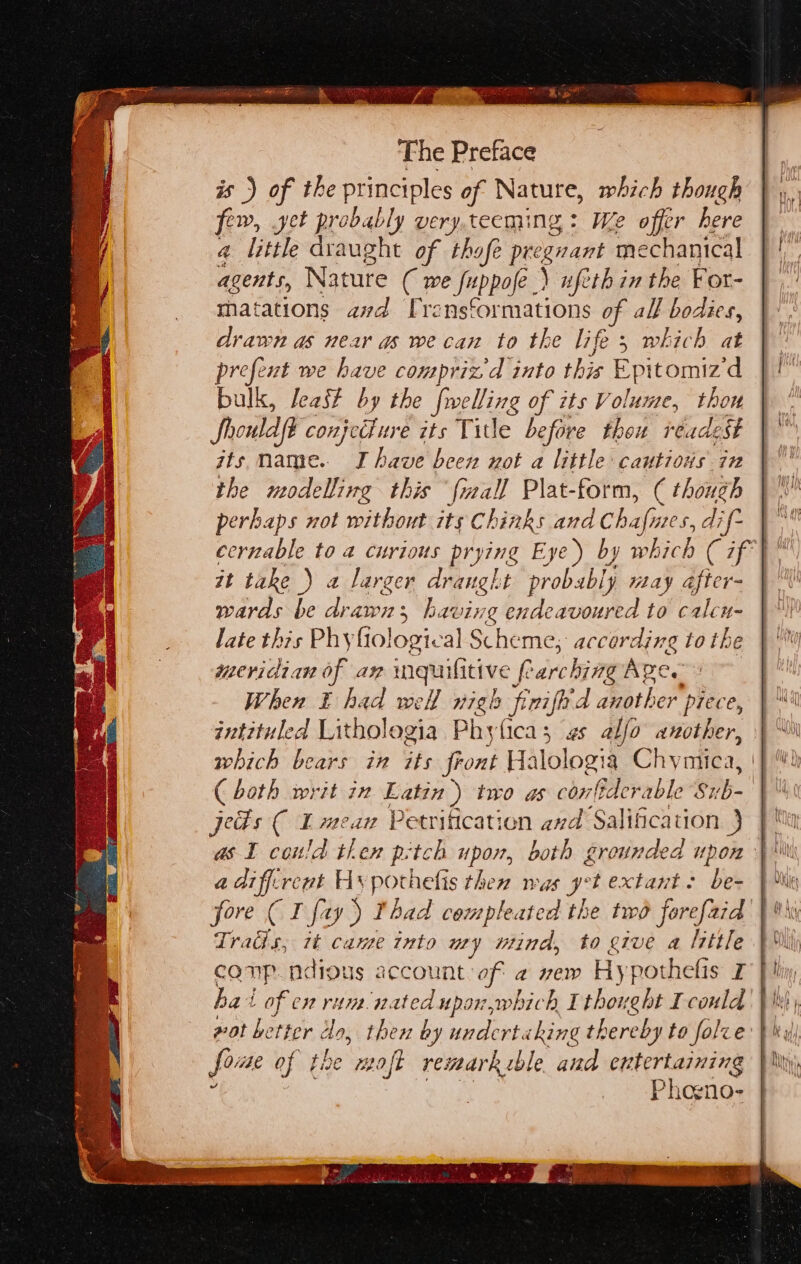 The Preface
is ) of the principles of Nature, which though
few, yet probably very teeming : We offer here
a little draught of thoſe pregnant mechanical
agents, Nature ( we ſuppoſe ) uſeth in the For-
matations and Transformations of all bodies,
drawn as near as we can to the life ; which at
preſent we have compriz'd into this Epitomiz'd
bulk, leaſt by the ſwelling of its Volume, thou
ſhouldſt conjecture its Title before thou readeſt
its name. I have been not a little cautious in
the modelling this ſmall Plat-form, ( though
perhaps not without its Chinks and Chaſmes, diſ-
cernable to a curious prying Eye) by which ( if
it take ) a larger draught probably may after-
wards be drawn ; having endeavoured to calcu-
late this Phyſiological Scheme, according to the
meridian of an inquiſitive ſearching Age.
When I had well nigh finiſh'd another piece,
intituled Lithologia Phyſica ; as alſo another,
which bears in its front Halologia Chymica,
( both writ in Latin ) two as conſiderable Sub-
jects ( I mean Petrification and Salification )
as I could then pitch upon, both grounded upon
a different Hypotheſis then was yet extant : be-
fore ( I ſay ) I had compleated the two foreſaid
Tracts, it came into my mind, to give a little
comp ndious account of a new Hypotheſis I
ha t of en rum nated upon, which I thought I could
not better do, then by undertaking thereby to ſolve
ſome of the moſt remarkable and entertaining
Phœno-